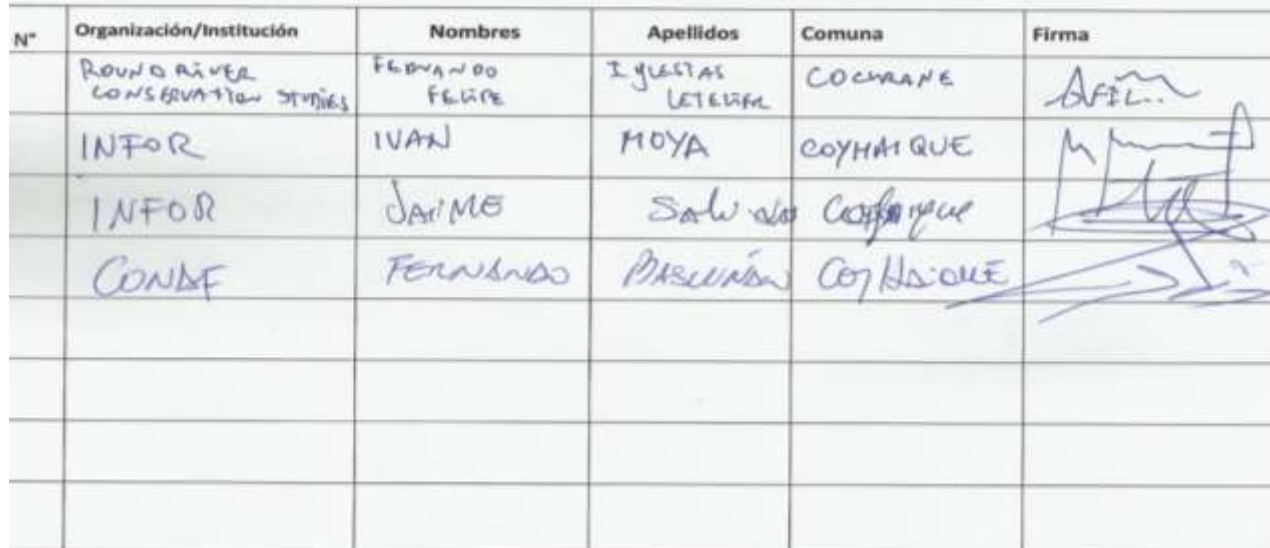 N° Organización/Institución Nombres Apellidos Comuna Firma
ROUND RIVER CONSERVATION STUDIES FERNANDO FELIPE IGLESIAS LETELIER COCHRANE
INFOR IVAN MOYA COYHAIQUE
INFOR JAIME Salinas Coyhaique
CONAF FERNANDO BASCUÑÁN COYHAIQUE